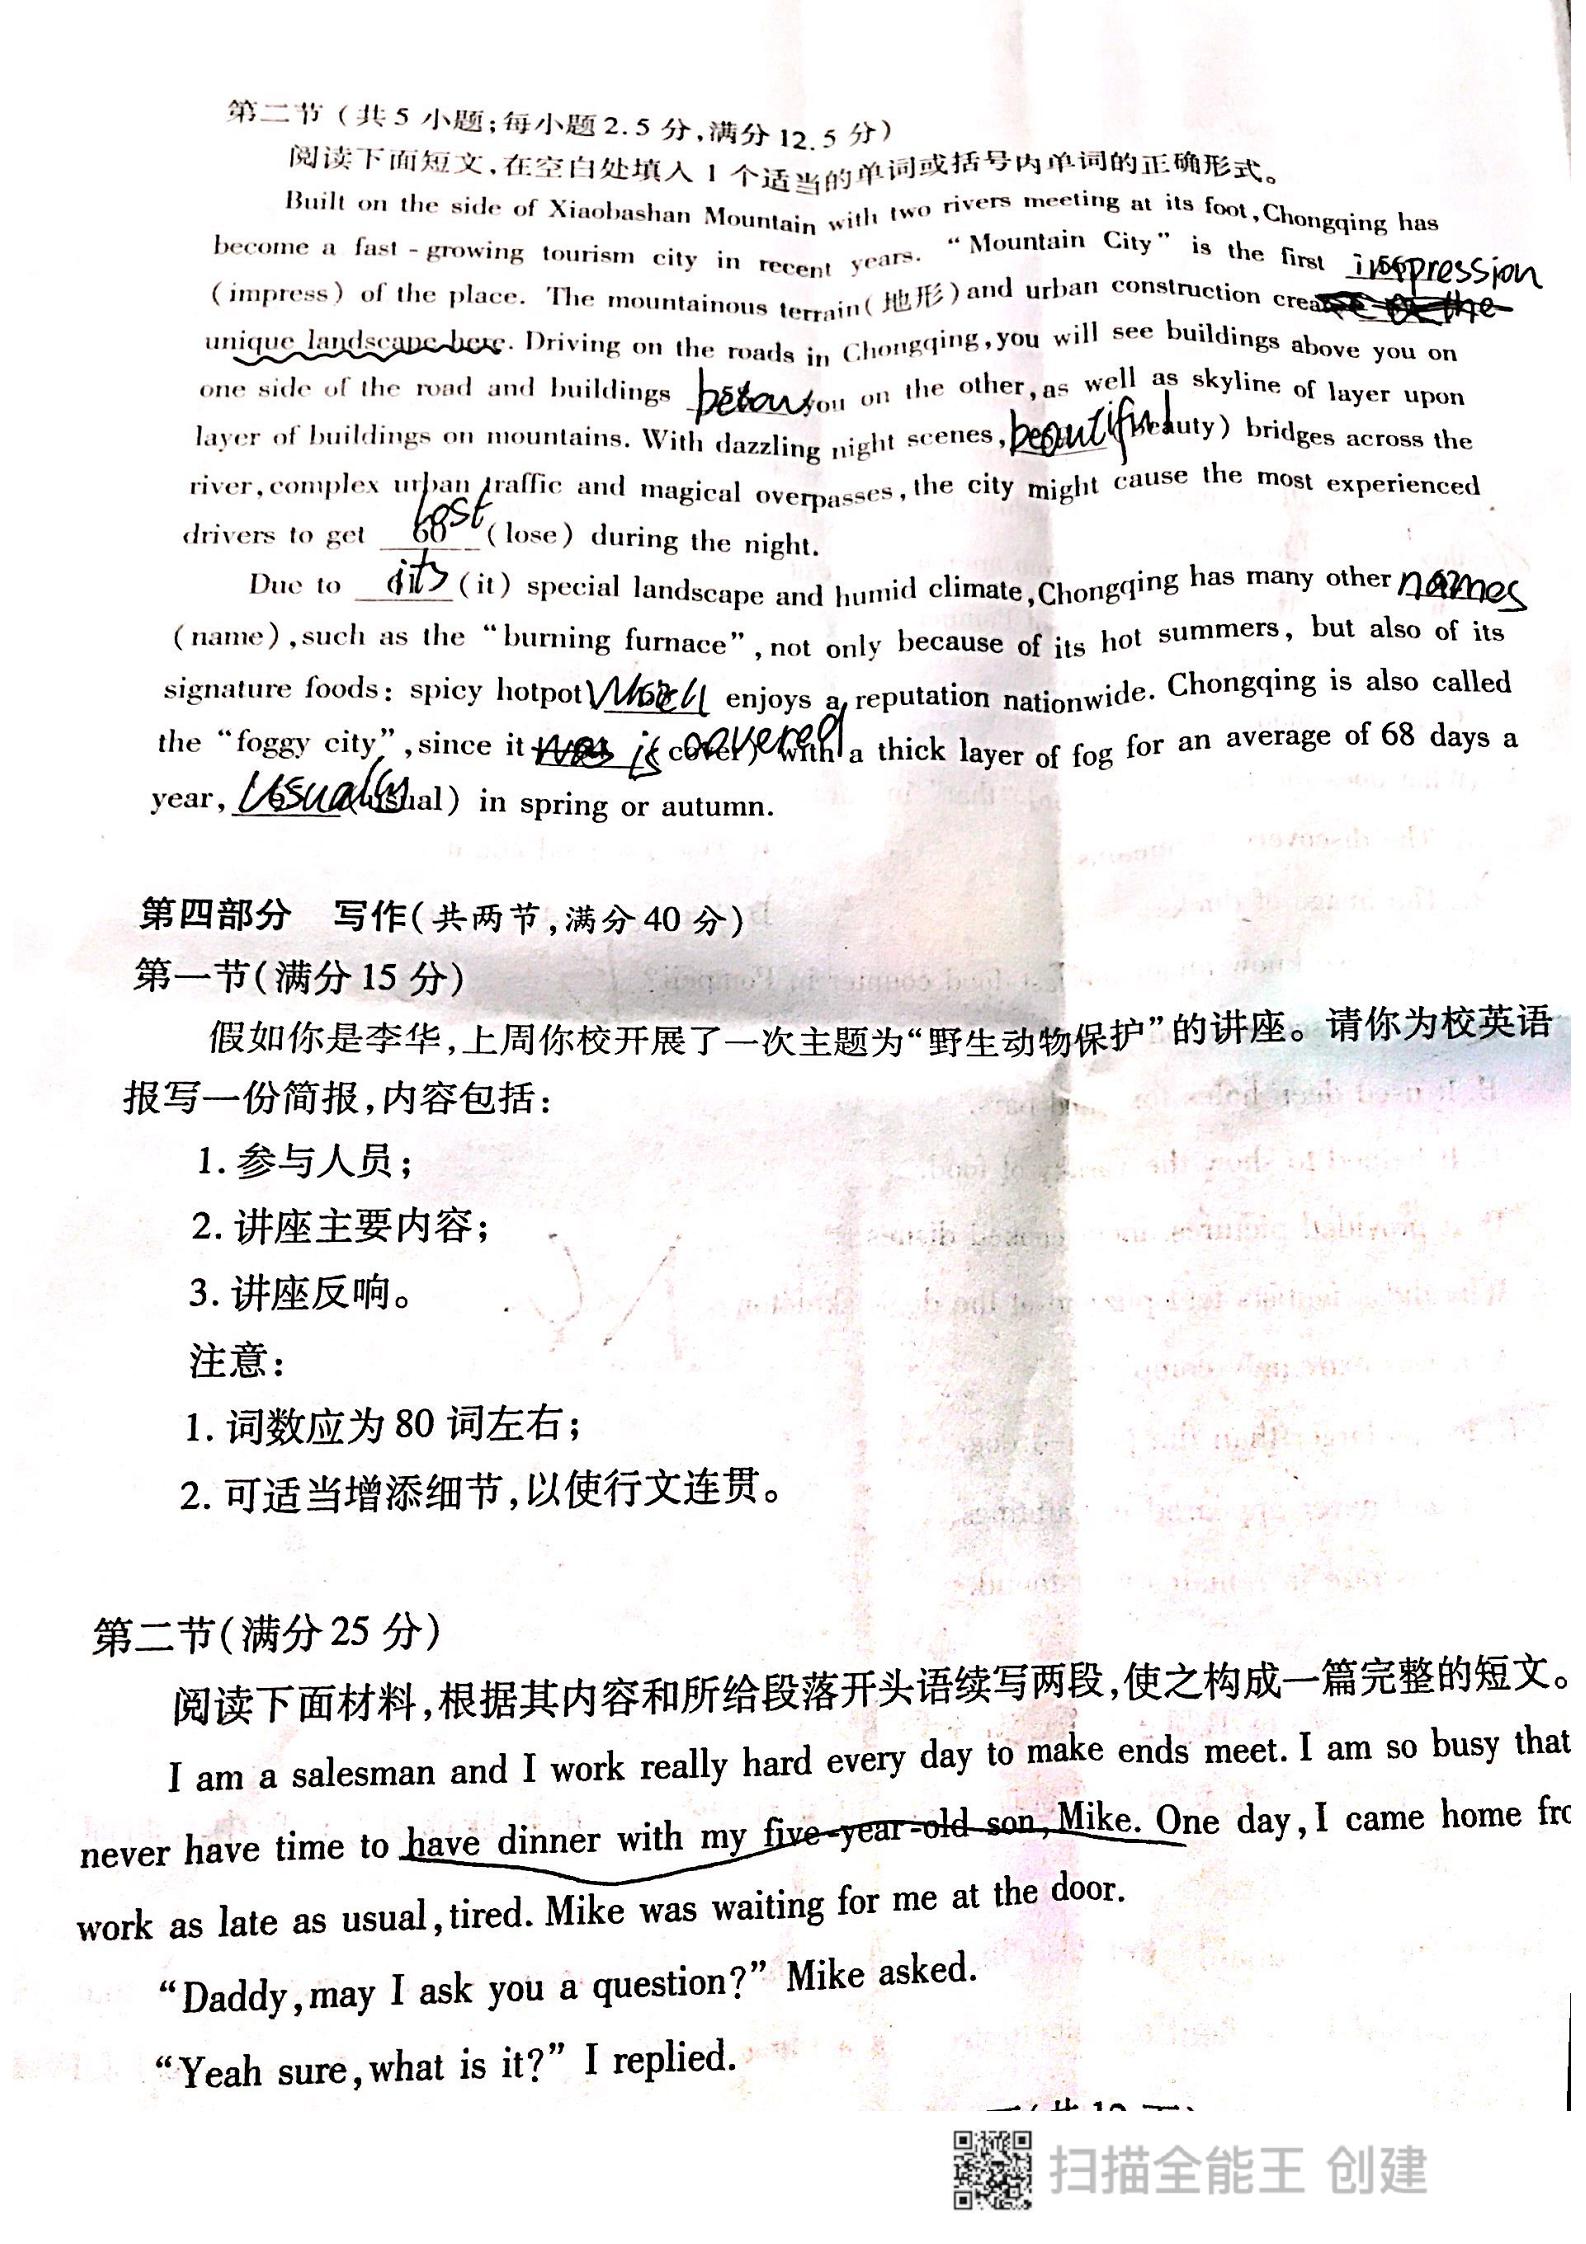 第二节(共5小题;每小题2.5分,满分12.5分)
阅读下面短文,在空白处填入1个适当的单词或括号内单词的正确形式。
Built on the side of Xiaobashan Mountain with two rivers meeting at its foot,Chongqing has
become a fast-growing tourism city in recent years. “Mountain City” is the first impression
(impress) of the place. The mountainous terrain(地形)and urban construction the
unique landscape here. Driving on the roads in Chongqing,you will see buildings above you on
one side of the road and buildings below you on the other,as well as skyline of layer upon
layer of buildings on mountains. With dazzling night scenes,beautiful (beauty) bridges across the
river,complex urban traffic and magical overpasses,the city might cause the most experienced
drivers to get 60 lost (lose) during the night.
Due to its (it) special landscape and humid climate,Chongqing has many other names
(name),such as the “burning furnace”,not only because of its hot summers, but also of its
signature foods: spicy hotpot which enjoys a reputation nationwide. Chongqing is also called
the “foggy city”,since it is covered (cover) with a thick layer of fog for an average of 68 days a
year, Usually (usual) in spring or autumn.
第四部分 写作(共两节,满分40分)
第一节(满分15分)
假如你是李华,上周你校开展了一次主题为“野生动物保护”的讲座。请你为校英语
报写一份简报,内容包括:
1. 参与人员;
2. 讲座主要内容;
3. 讲座反响。
注意:
1. 词数应为80词左右;
2. 可适当增添细节,以使行文连贯。
第二节(满分25分)
阅读下面材料,根据其内容和所给段落开头语续写两段,使之构成一篇完整的短文。
I am a salesman and I work really hard every day to make ends meet. I am so busy that
never have time to have dinner with my five-year-old son,Mike. One day,I came home fro
work as late as usual,tired. Mike was waiting for me at the door.
“Daddy,may I ask you a question?” Mike asked.
“Yeah sure,what is it?” I replied.
扫描全能王 创建